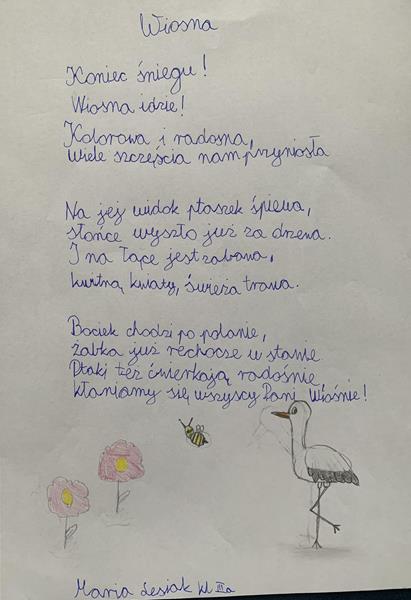 Wiosna
Koniec śniegu!
Wiosna idzie!
Kolorowa i radosna,
wiele szczęścia nam przyniosła
Na jej widok ptaszek śpiewa,
słońce wyszło już za drzewa.
I na łące jest zabawa,
kwitną kwiaty, świeża trawa.
Bociek chodzi po polanie,
żabka już rechocze w stawie
Ptaki też ćwierkają radośnie,
kłaniamy się wszyscy Pani Wiośnie!
Maria Lesiak kl IIIa